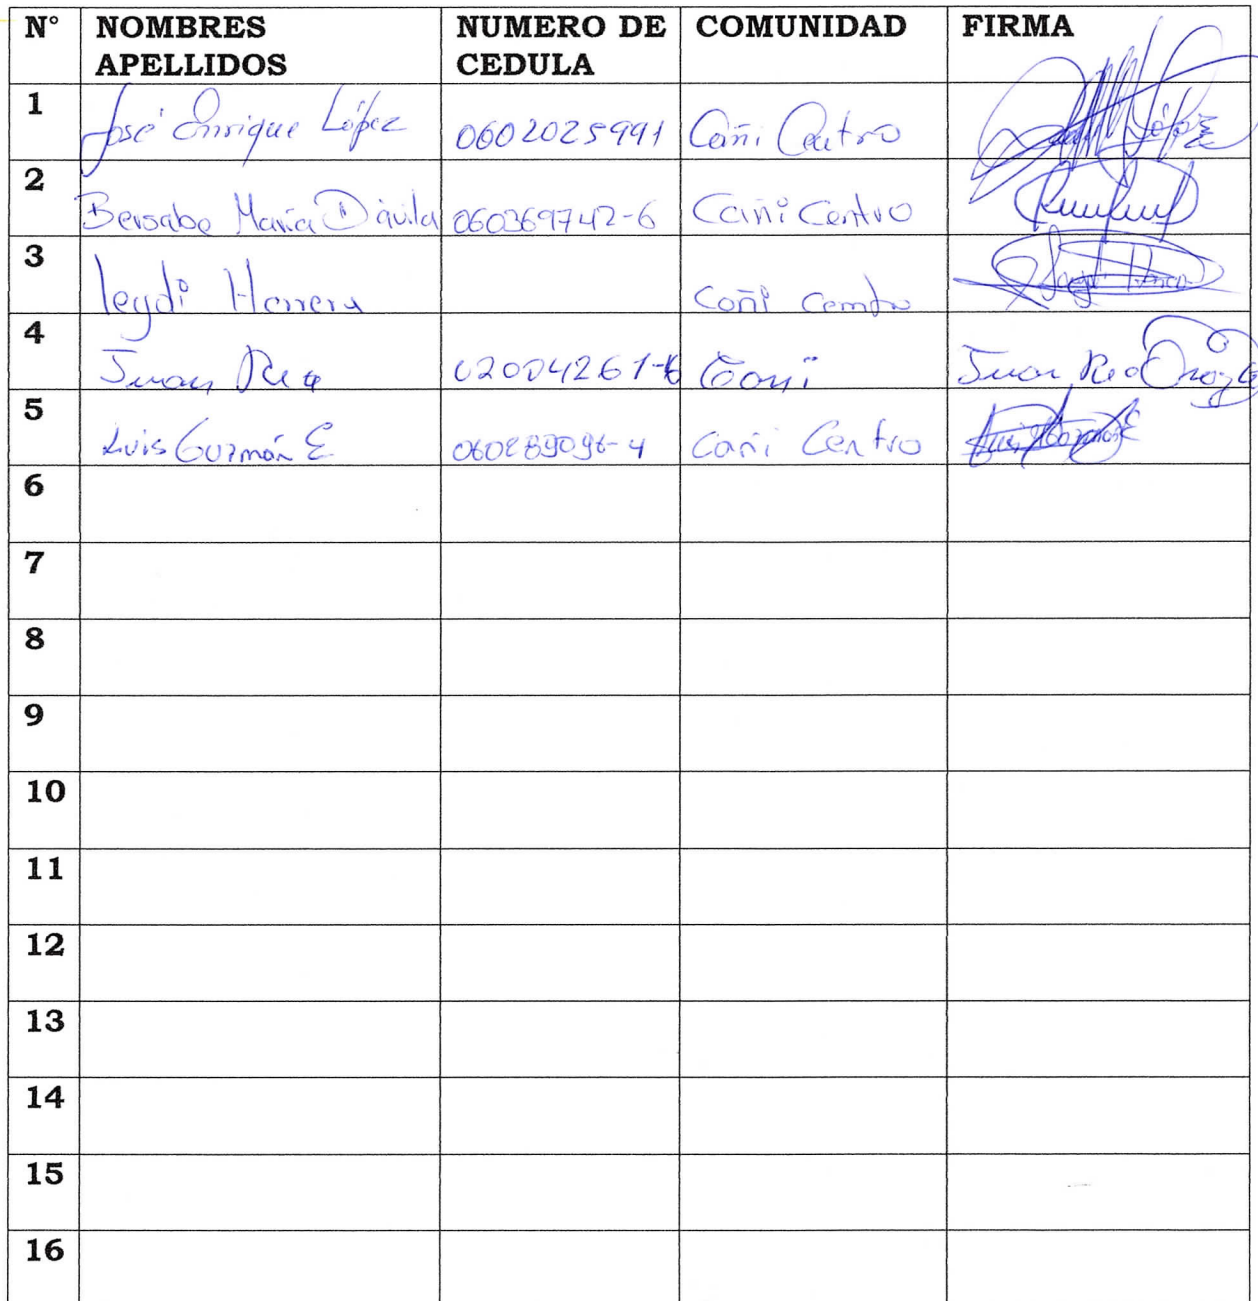 N° NOMBRES APELLIDOS NUMERO DE CEDULA COMUNIDAD FIRMA
1 José Enrique López 0602025991 Cañi Centro López
2 Bersabe María Dávila 060369742-6 Cañi Centro
3 leydi Herrera Cañi Centro
4 Juan Rea 02004261-6 Cañi Juan Rea
5 Luis Guzmán E 060289096-4 Cañi Centro
6
7
8
9
10
11
12
13
14
15
16